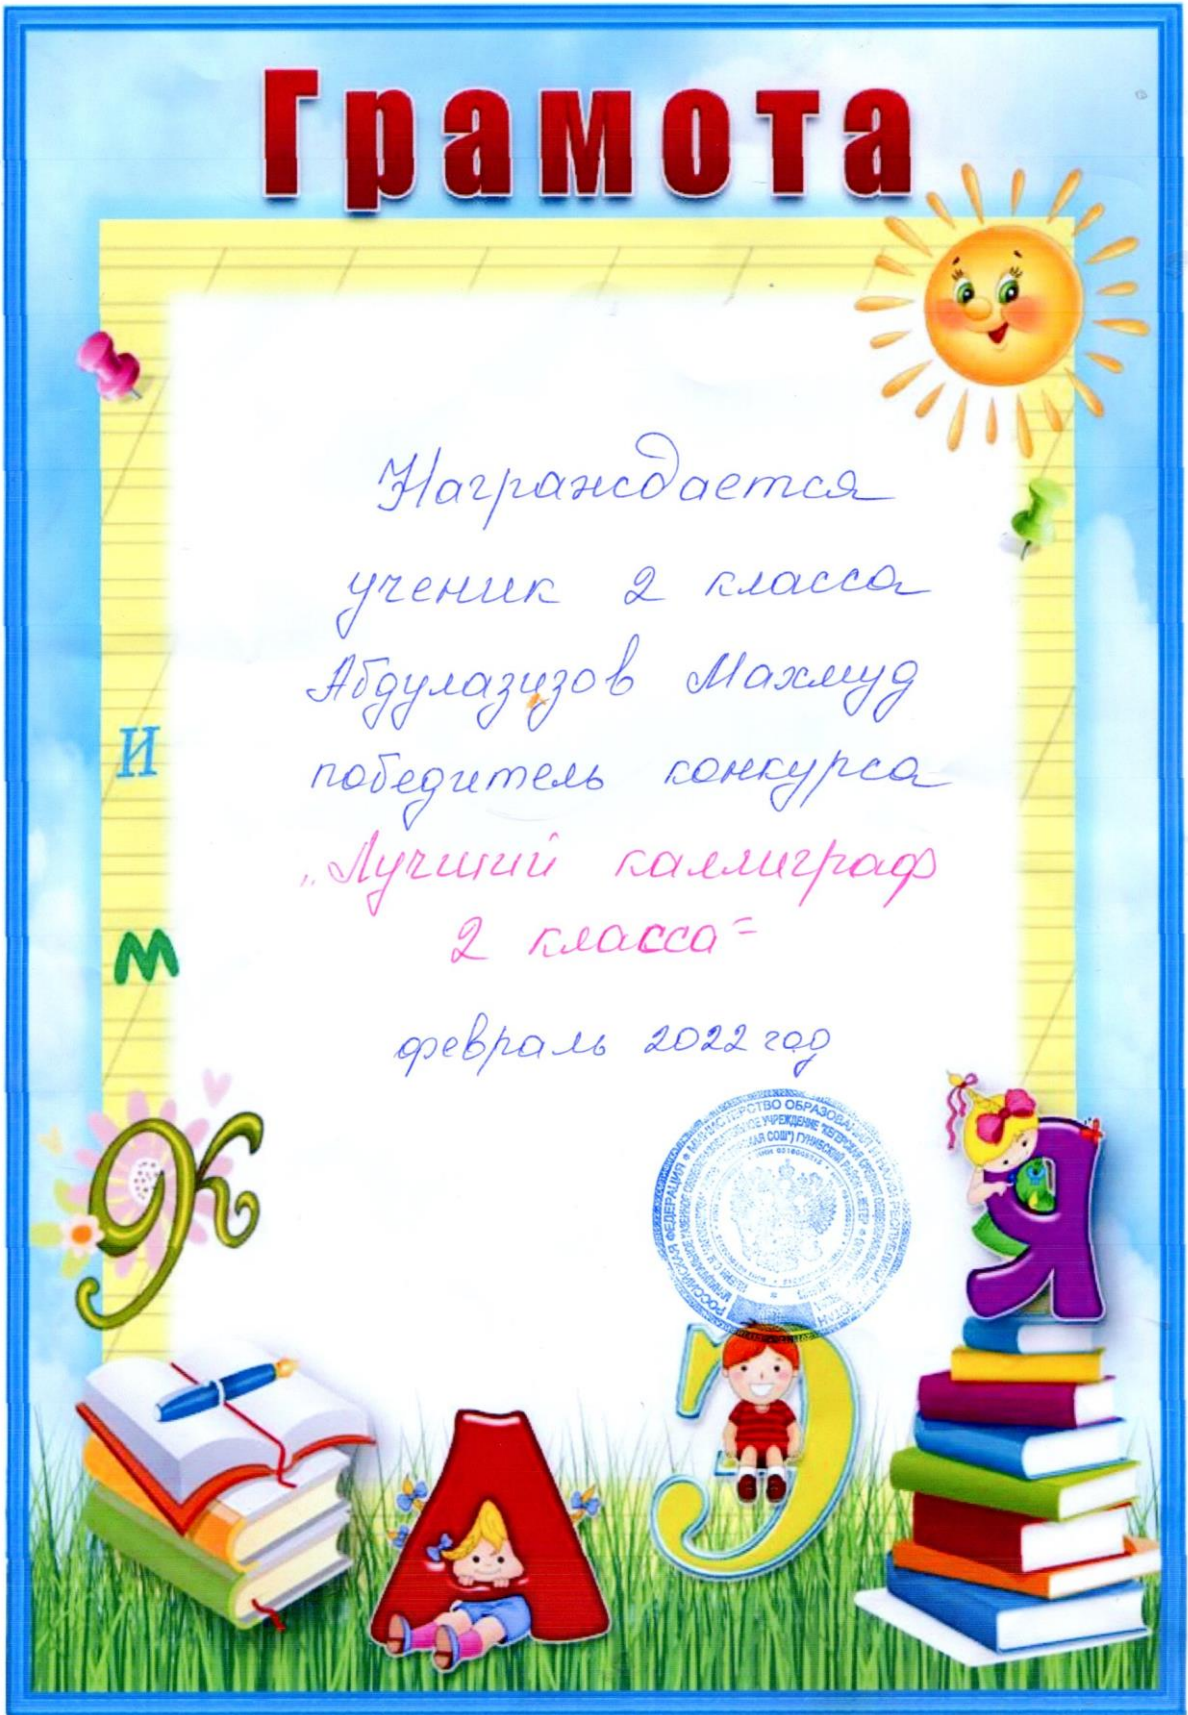 Грамота
Награждается
ученик 2 класса
Абдулазизов Махмуд
победитель конкурса
„Лучший каллиграф
2 класса"
февраль 2022 год
И
м
Ж
Я
Э
А
РОССИЙСКАЯ ФЕДЕРАЦИЯ МИНИСТЕРСТВО ОБРАЗОВАНИЯ И НАУКИ РЕСПУБЛИКИ